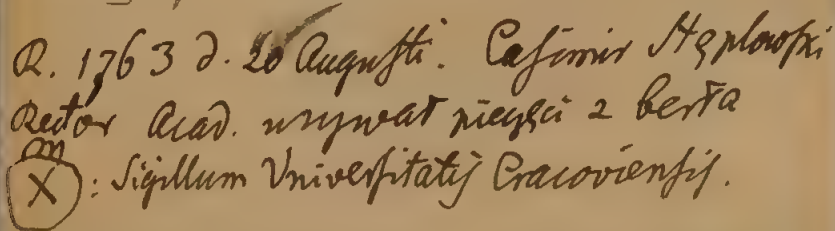 R. 1763 d. 20 Augusti. Casimir Stęplowski
Rector Acad. używał pieczęci 2 berła
X : Sigillum Universitatis Cracoviensis.